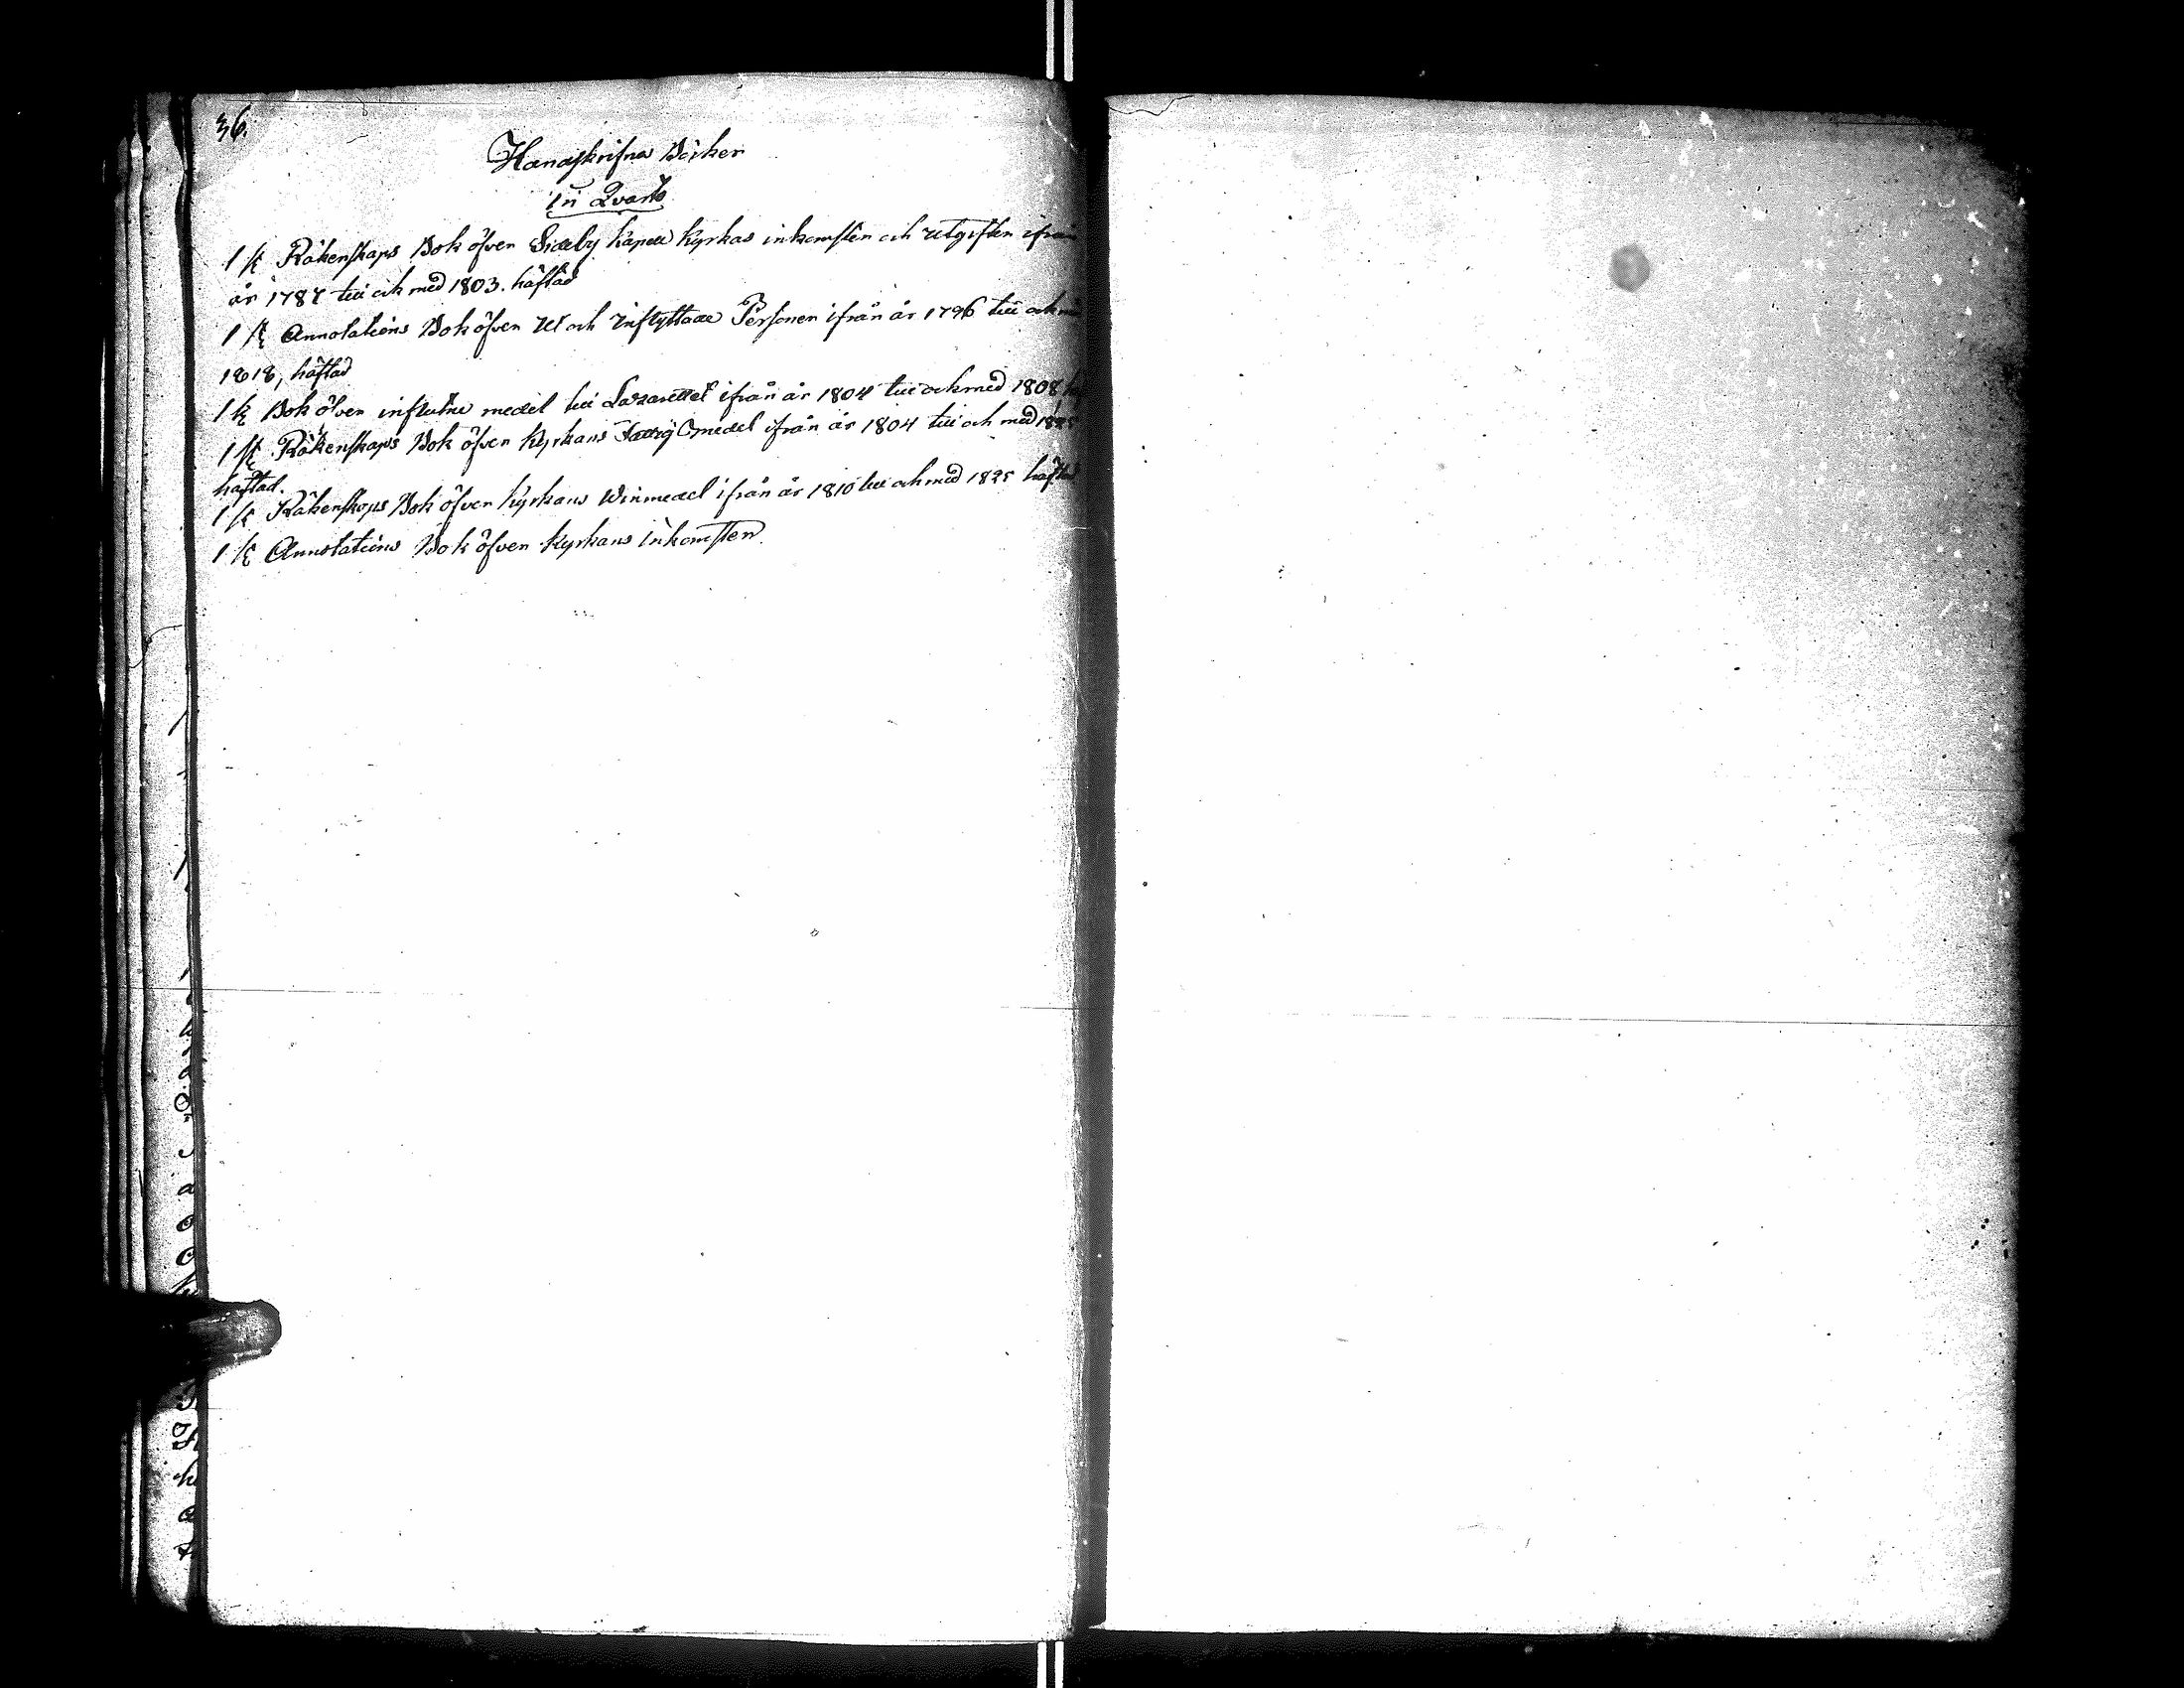 36.
Handskrifna Böcker
in Qvarto
1 st Räkenskaps Bok öfver Sideby kapell kyrkas inkomster och utgifter ifrån
år 1787 till och med 1803. häftad
1 st Annotations Bok öfver ut och inflyttade Personer ifrån år 1796 till och med
1818, häftad
1 st Bok öfver influtne medel till Lazarettet ifrån år 1804 till och med 1808
1 st Räkenskaps Bok öfver Kyrkans Fattig medel ifrån år 1804 till och med 1825
häftad.
1 st Räkenskaps Bok öfver kyrkans Winmedel ifrån år 1810 till och med 1825 häftad
1 st Annotations Bok öfver Kyrkans inkomster.